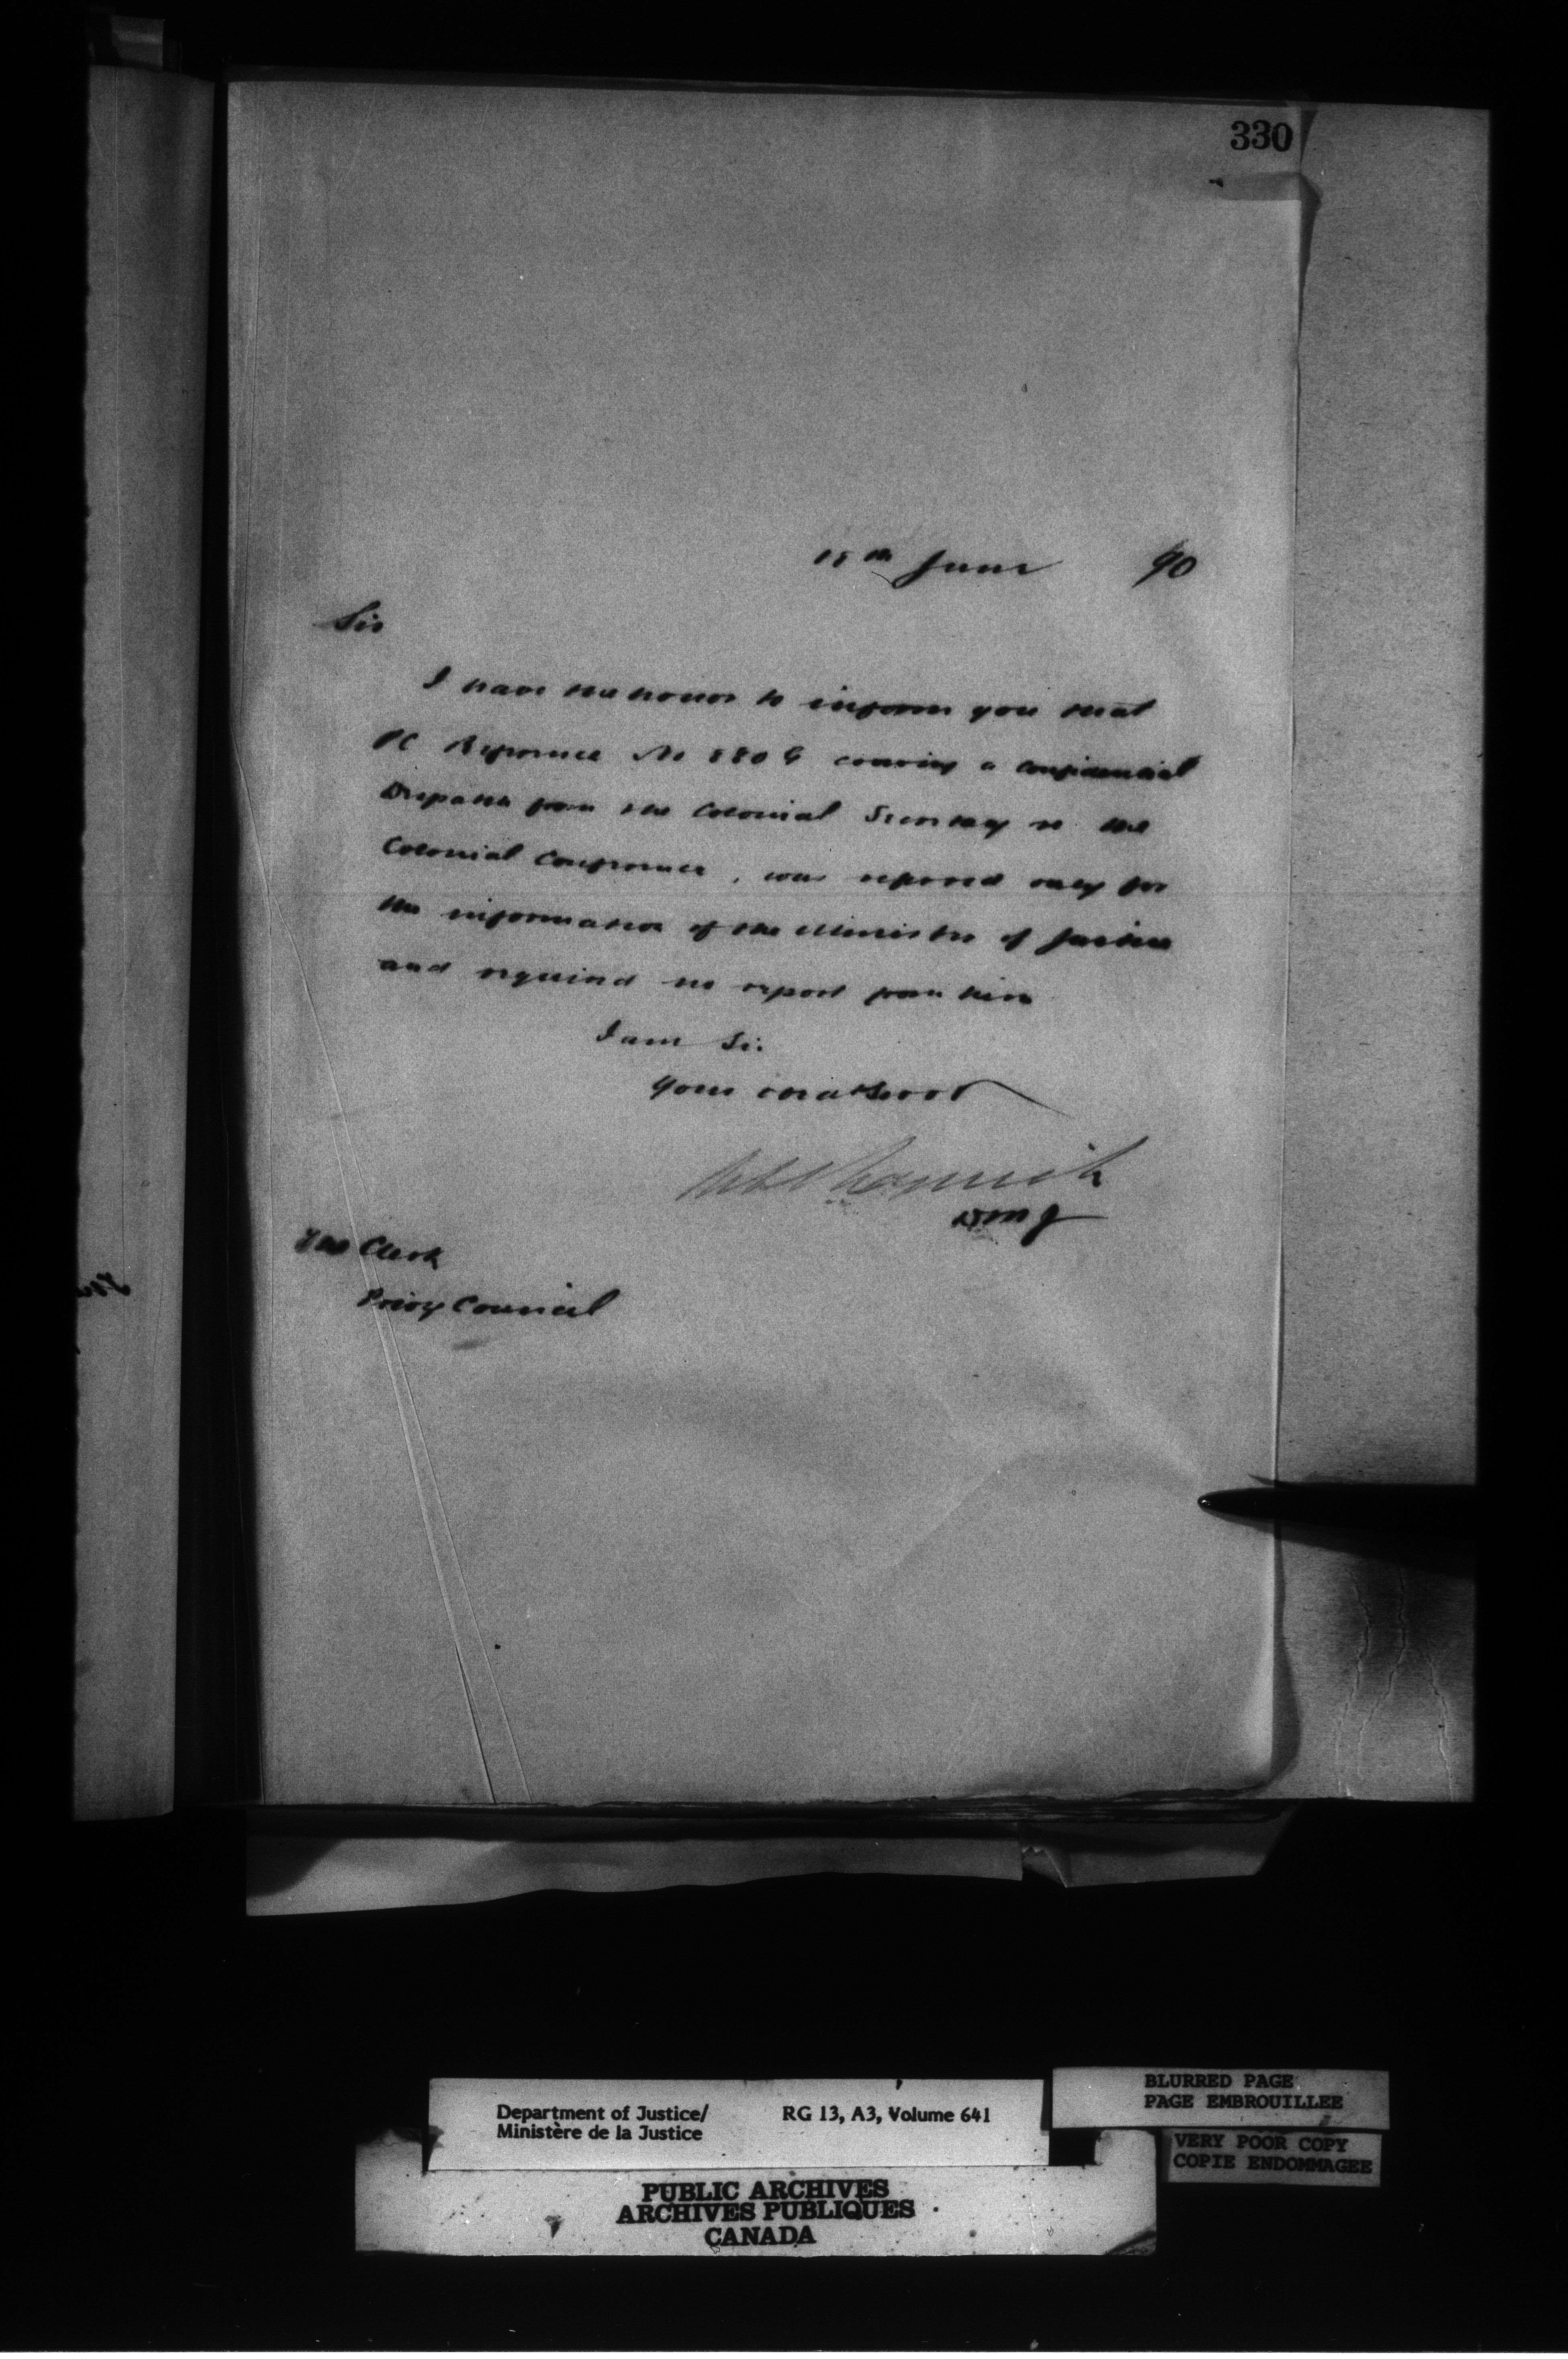 330
18th June 90
Sir
I have the honor to inform you that
PC Reference No 880 G covering a confidential
Despatch from the Colonial Secretary re the
Colonial Conference, was referred only for
the information of the Minister of Justice
and required no report from him
I am Sir
Your obdt Servt
DMJ
The Clerk
Privy Council
Department of Justice/ RG 13, A3, Volume 641
Ministère de la Justice
BLURRED PAGE
PAGE EMBROUILLEE
VERY POOR COPY
COPIE ENDOMMAGEE
PUBLIC ARCHIVES
ARCHIVES PUBLIQUES
CANADA